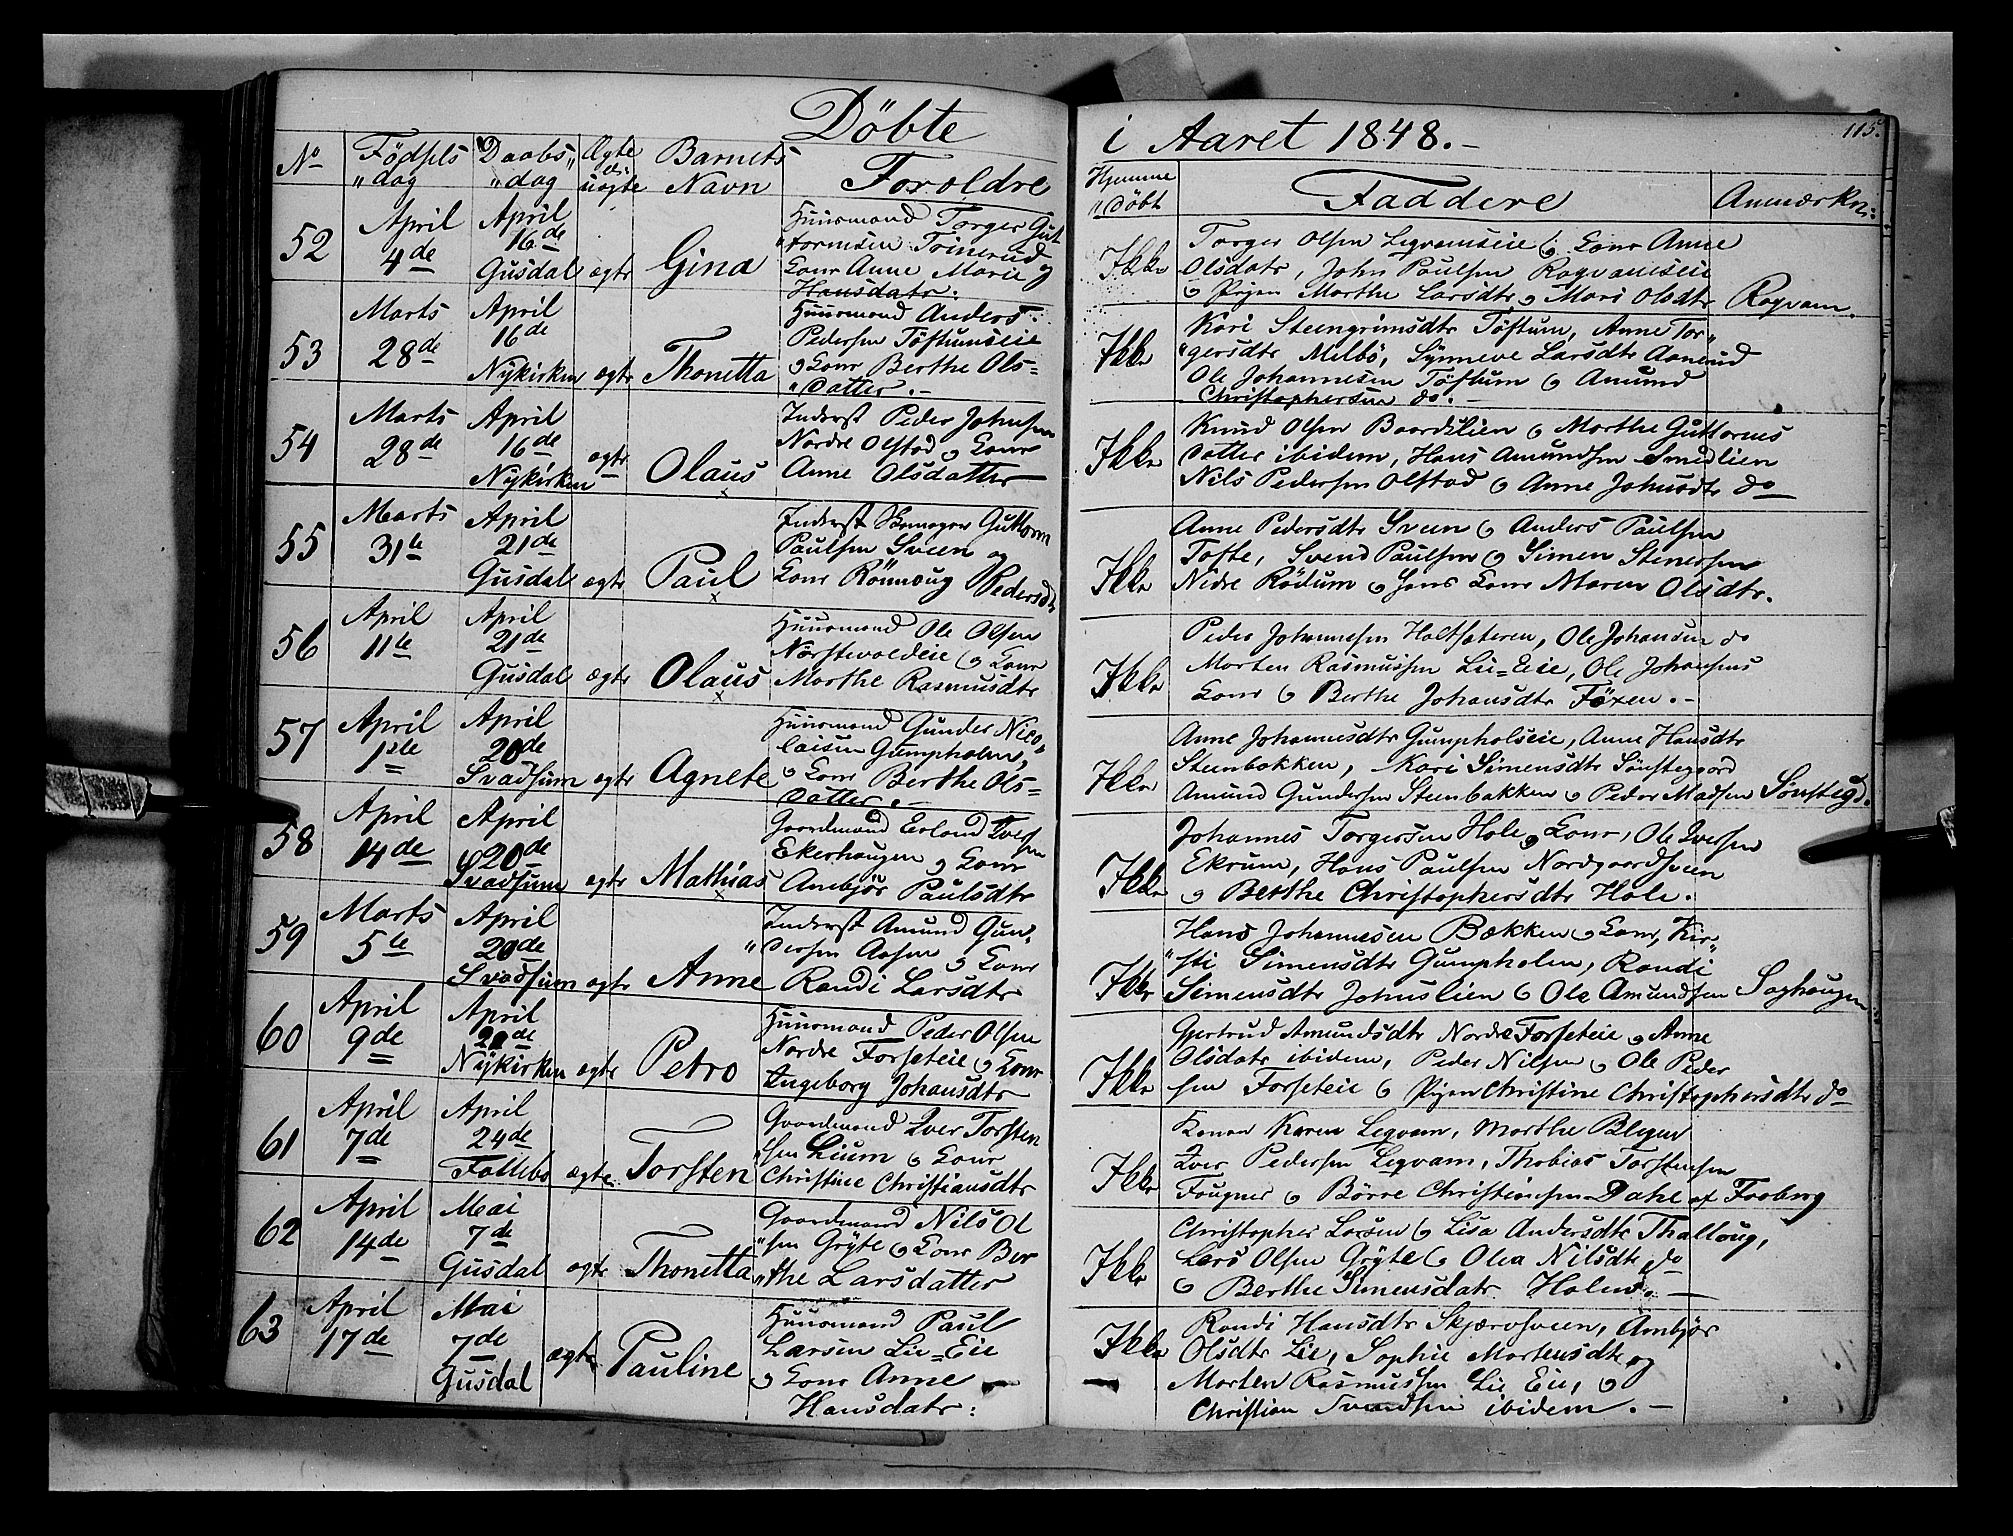 Döbte
i Aaret 1848.-
115.
No Födsels „dag Daabs „dag Ægte el: uægte Barnets Navn Forældre Hjemme „döbt Faddere Anmærkn:
52 April 4de April 16de Gusdal ægte Gina
Huusmand Torger Gut
tormsen Trinerud og
Konr Anne Marie
Hansdatr:
Ikke
Torger Olsen Leqvamseie og Konr Anne
Olsdatr, John Paulsen Raqvamseie
og Pigen Marthe Larsdtr og Mari Olsdtr Raqvam.
53 Marts 28de April 16de Nykirken ægte Thonetta
Huusmand Anders
Pedersen Töftumseie
og Konr Berthe Ols=
„datter.-
Ikke
Kari Steengrimsdtr Töftum, Anne Tor„
„gersdtr Melbö, Synneve Larsdtr Aamund
Ole Johannesen Töftum og Amund
Christophersen do.-
54 Marts 28de April 16de Nykirken ægte Olaus
Inderst Peder Johnsen
Nordre Olstad og Konr
Anne Olsdatter
Ikke
Knud Olsen Baardslien og Marthe Guttorms
datter ibidem, Hans Amundsen Smedlien
Nils Pedersen Olstad og Anne Johnsdtr do
55 Marts 31te April 21de Gusdal ægte Paul
Inderst Skomager Guttorm
Paulsen Sveen og
Konr Rönnaug Pedersdtr
Ikke
Anne Pedersdtr Sveen og Anders Paulsen
Tofte, Svend Paulsen og Simen Stenersen
Nedre Rödum og hans Konr Maren Olsdtr.
56 April 11te April 21de Gusdal ægte Olaus
Huusmand Ole Olsen
Nörstevoldeie og Konr
Marthe Rasmusdtr
Ikke
Peder Johannesen Holtsæteren, Ole Johansen do
Morten Rasmussen Lie=Eie, Ole Johansens
Konr og Berthe Johansdtr Föxen.-
57 April 1ste April 20de Svadsum ægte Agnete
Huusmand Gunder Nico„
laisen Gumpholen,
og Konr Berthe Ols=
datter.-
Ikke
Anne Johannesdtr Gumpholseie, Anne Hansdtr
Steenbakken, Kari Simensdtr Sönstegaard
Amund Gundersen Steenbakken og Peder Madsen Sönstegd.
58 April 14de April 20de Svadsum ægte Mathias
Gaardmand Erland Iversen
Ekerhaugen og Konr
Ambjör Paulsdtr
Ikke
Johannes Torgersen Hole og Konr, Ole Iversen
Ekrum, Hans Paulsen Nordgaardsveen
og Berthe Christophersdtr Hole.
59 Marts 5te April 20de Svadsum ægte Anne
Inderst Amund Gun„
„dersen Aasen og Konr
Randi Larsdtr
Ikke
Hans Johannesen Bækken og Konr, Kir„
„sti Simensdtr Gumpholen, Randi
Simensdtr Johnslien og Ole Amundsen Saghaugen
60 April 9de April 20de Nykirken ægte Petro
Huusmand Peder Olsen
Nordre Forseteie og Konr
Ingeborg Johansdtr
Ikke
Gjertrud Amundsdtr Nordre Forseteie og Anne
Olsdatr ibidem, Peder Nilsen og Ole Peder
sen Forseteie og Pigen Christine Christophersdtr do
61 April 7de April 24de Follebo ægte Torsten
Gaardmand Iver Torsten
„sen Lium og Konr
Christine Christiansdtr
Ikke
Konen Karen Leqvam, Marthe
Iver Pedersen Leqvam, Thobias Torstensen
Fougner og Börre Christiansen Dahl af Faaberg
62 April 14de Mai 7de Gusdal ægte Thonetta
Gaardmand Nils Ol
„sen Gryte og Konr Ber
„the Larsdatter
Ikke
Christopher Larsen og Lisa Andersdtr Thalloug,
Lars Olsen Gryte og Olea Nilsdtr do
og Berthe Simensdatr Holen.-
63 April 17de Mai 7de Gusdal ægte Pauline
Huusmand Paul
Larsen Lie=Eie
og Konr Anne
Hansdatr:
Ikke
Randi Hansdtr Skjærvsveen, Ambjör
Olsdtr Lie, Sophie Mortensdtr og
Morten Rasmussen Lie Eie, og
Christian Svendsen ibidem.-